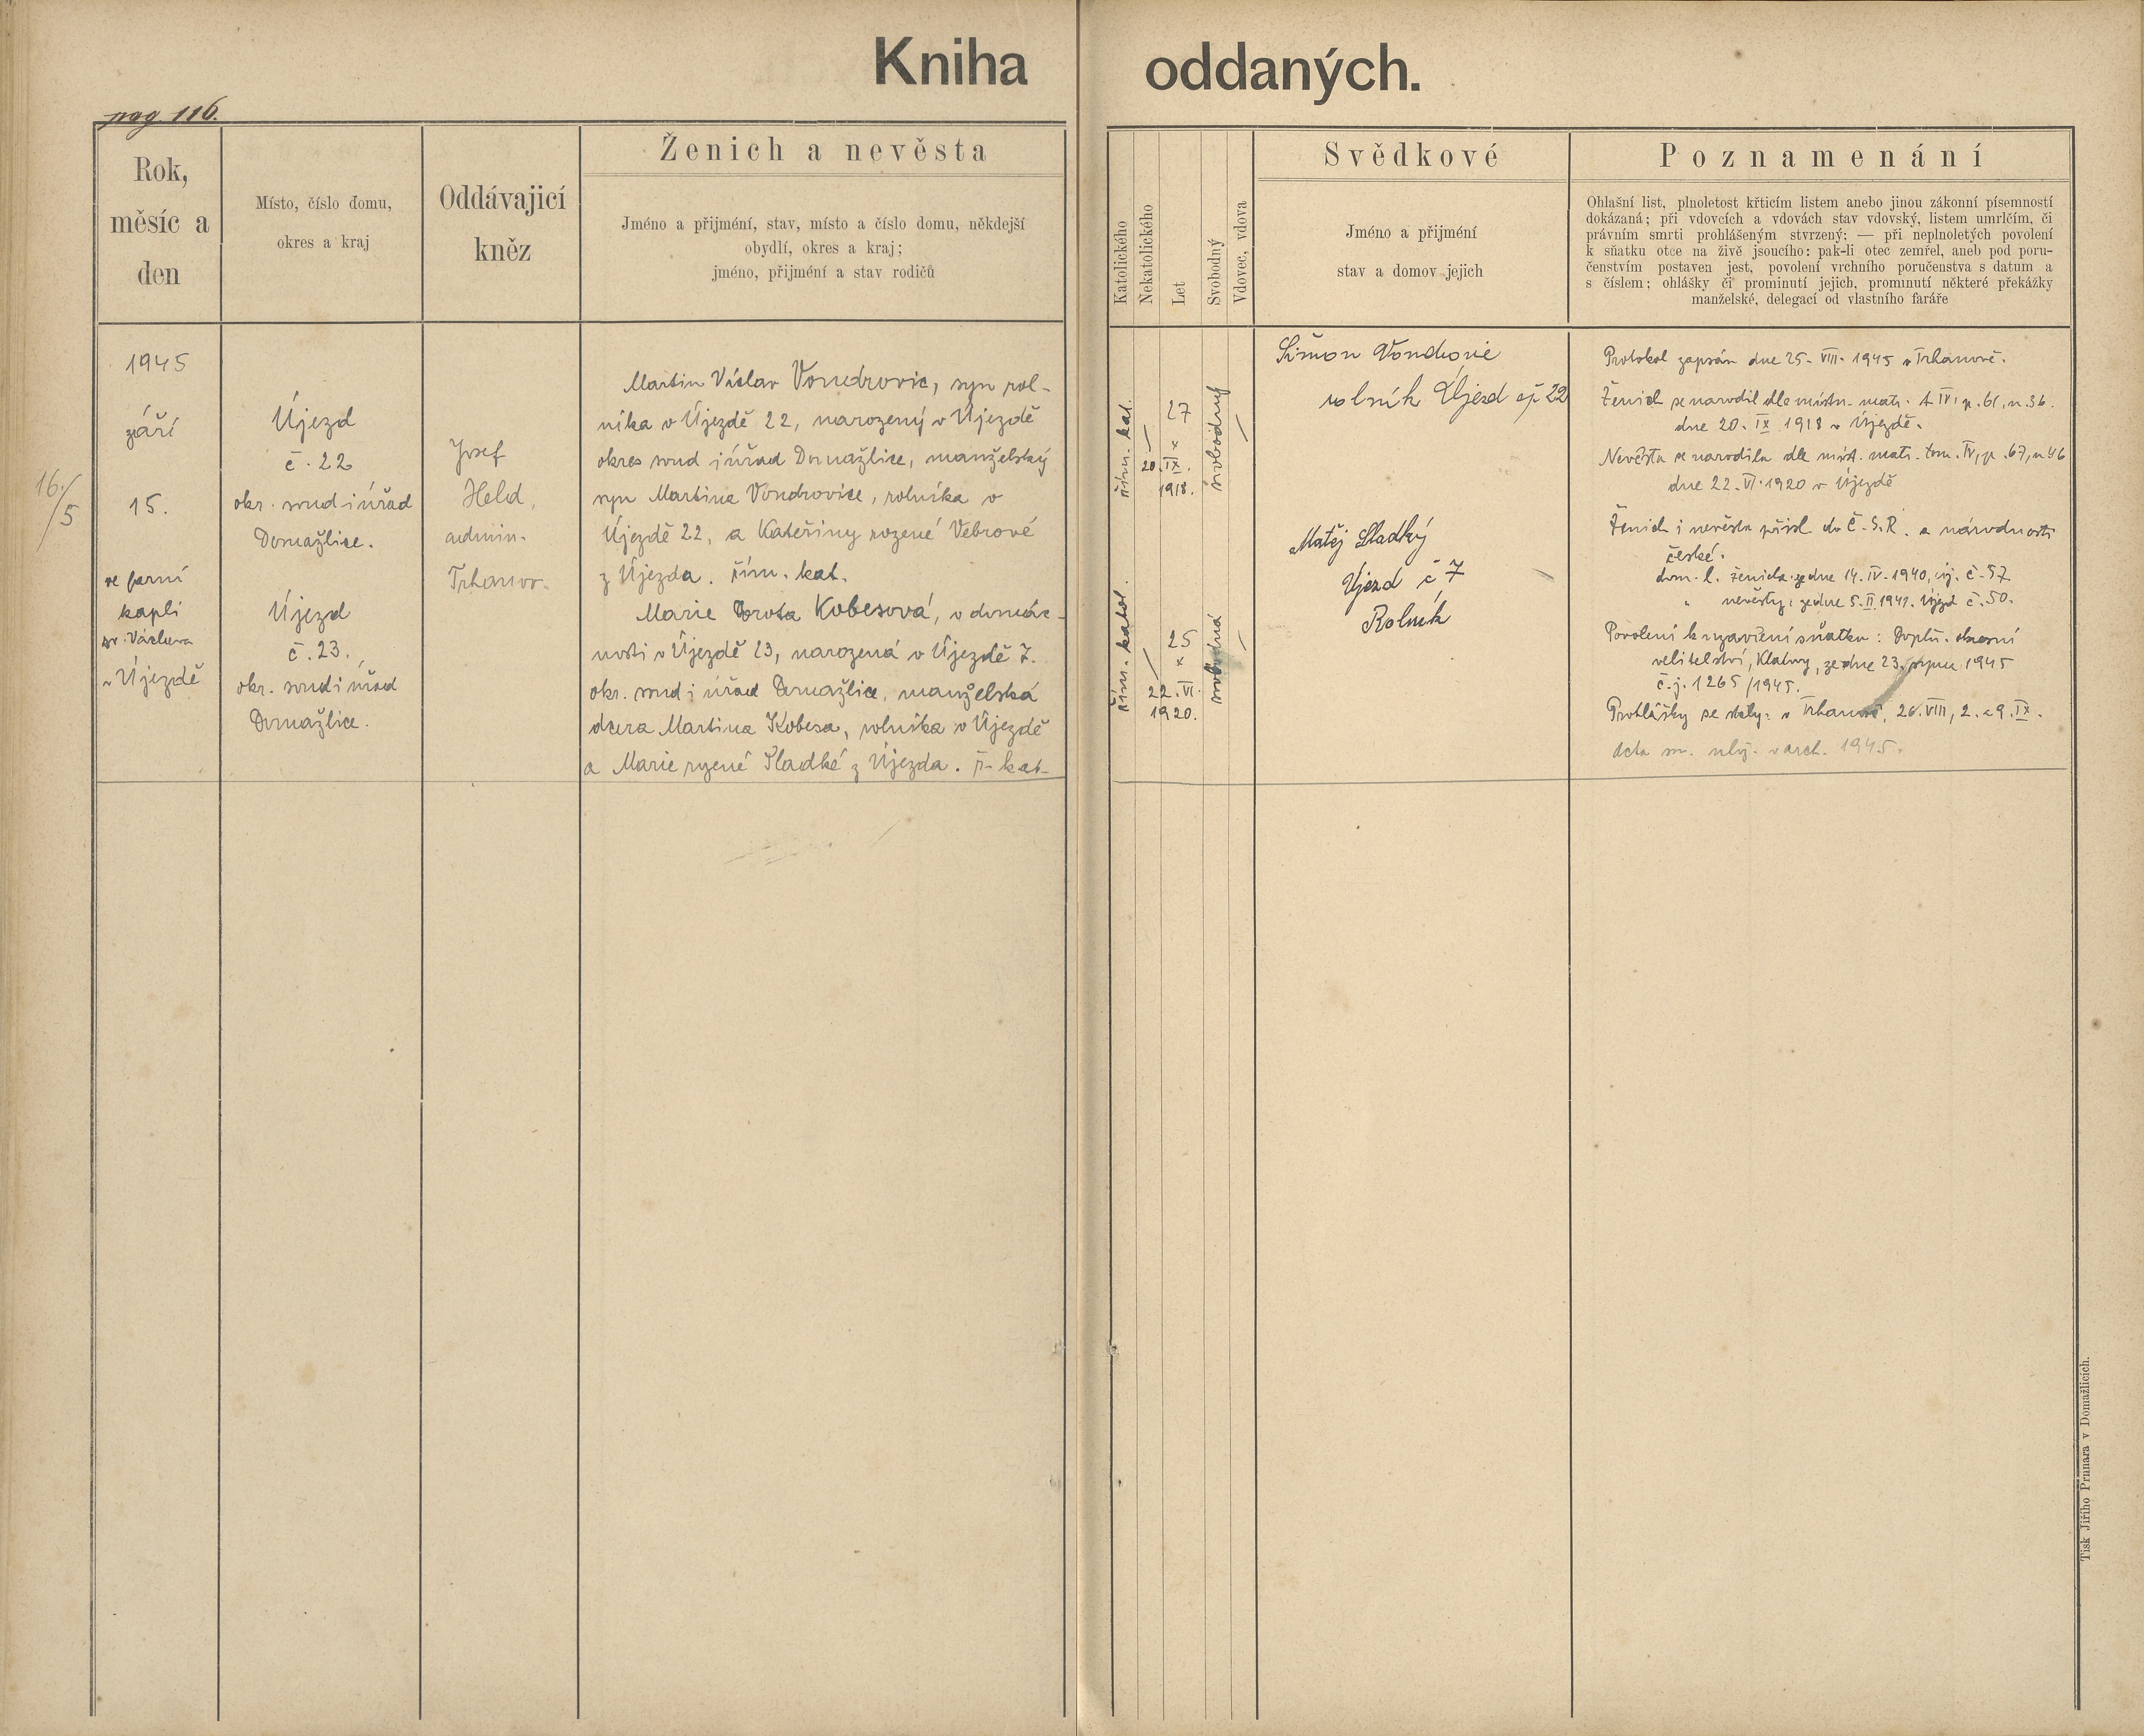 Kniha oddaných.
pag. 116.
Rok,
měsíc a
den
Místo, číslo domu,
okres a kraj
Oddávajicí
kněz
Ženich a nevěsta
Jméno a přijmení, stav, místo a číslo domu, někdejší
obydlí, okres a kraj;
jméno, přijmení a stav rodičů
Katolického
Nekatolického
Let
Svobodný
Vdovec, vdova
Svědkové
Jméno a přijmení
stav a domov jejich
Poznamenání
Ohlašní list, plnoletost křticím listem anebo jinou zákonní písemností
dokázaná; při vdovcích a vdovách stav vdovský, listem umrlčím, či
právním smrti prohlášeným stvrzený; — při neplnoletých povolení
k sňatku otce na živě jsoucího; pak-li otec zemřel, aneb pod poru-
čenstvím postaven jest, povolení vrchního poručenstva s datum a
s číslem; ohlášky či prominutí jejich, prominutí některé překážky
manželské, delegací od vlastního faráře
16./5
1945
září
15.
ve farní
kapli
sv. Václava
v Újezdě
Újezd
č. 22
okr. soud i úřad
Domažlice.
Újezd
č. 23.
okr. soud i úřad
Domažlice.
Josef
Held,
admin.
Trhanov.
Martin Václav Vondrovic, syn rol-
níka v Újezdě 22, narozený v Újezdě
okres soud i úřad Domažlice, manželský
syn Martina Vondrovice, rolníka v
Újezdě 22, a Kateřiny rozené Vebrové
z Újezda. řím. kat.
Marie Dorota Kobesová, v domác-
nosti v Újezdě 23, narozená v Újezdě 7.
okr. soud i úřad Domažlice, manželská
dcera Martina Kobesa, rolníka v Újezdě
a Marie rozené Sladké z Újezda. ř. kat.
řím. kat.
27
×
20. IX.
1918.
svobodný
řím. katol.
25
×
22. VI.
1920.
svobodná
Šimon Vondrovic
rolník Újezd čp 22
Matěj Sladký
Újezd č 7
Rolník
Protokol zapsán dne 25. VIII. 1945 v Trhanově.
Ženich se narodil dle místn. matr. t. IV, p. 61, n. 36.
dne 20. IX 1918 v Újezdě.
Nevěsta se narodila dle míst. matr. tom. IV, p. 67, n 46
dne 22. VI. 1920 v Újezdě
Ženich i nevěsta přísl. do Č.S.R. a národnosti
české.
dom. l. ženicha ze dne 14. IV. 1940, új. č. 57
" nevěsty: ze dne 5. II. 1941. Újezd č. 50.
Povolení k uzavření sňatku: Doplň. okresní
velitelství, Klatovy, ze dne 23. srpna 1945
č. j. 1265/1945.
Prohlášky se staly: v Trhanově, 26. VIII, 2. a 9. IX.
acta v arch. 1945.
Tisk Jiřího Prunara v Domažlicích.